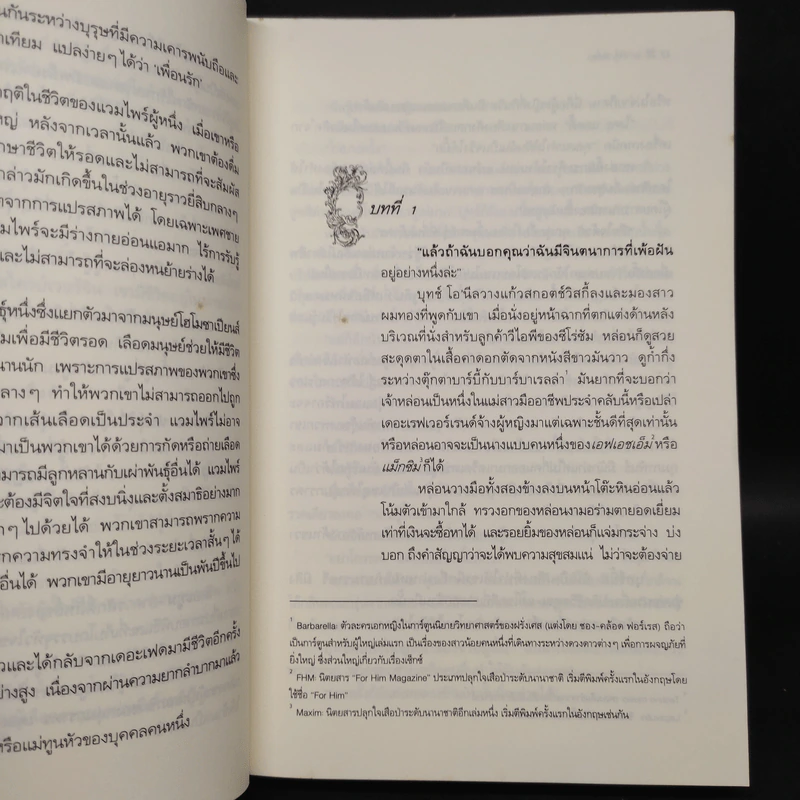 นกันระหว่างบุรุษที่มีความเคารพนับถือและ
าเทียม แปลง่ายๆ ได้ว่า 'เพื่อนรัก'
กฤติในชีวิตของแวมไพร์ผู้หนึ่ง เมื่อเขาหรือ
ใหญ่ หลังจากเวลานั้นแล้ว พวกเขาต้องดื่ม
กษาชีวิตให้รอดและไม่สามารถที่จะสัมผัส
กล่าวมักเกิดขึ้นในช่วงอายุราวยี่สิบกลางๆ
จากการแปรสภาพได้ โดยเฉพาะเพศชาย
มไพร์จะมีร่างกายอ่อนแอมาก ไร้การรับรู้
และไม่สามารถที่จะล่องหนย้ายร่างได้
ธุ์หนึ่งซึ่งแยกตัวมาจากมนุษย์โฮโมซาเปียนส์
มเพื่อมีชีวิตรอด เลือดมนุษย์ช่วยให้มีชีวิต
นานนัก เพราะการแปรสภาพของพวกเขาซึ่ง
ลางๆ ทำให้พวกเขาไม่สามารถออกไปถูก
จากเส้นเลือดเป็นประจำ แวมไพร์ไม่อาจ
มาเป็นพวกเขาได้ด้วยการกัดหรือถ่ายเลือด
ามารถมีลูกหลานกับเผ่าพันธุ์อื่นได้ แวมไพร์
ะต้องมีจิตใจที่สงบนิ่งและตั้งสมาธิอย่างมาก
กๆ ไปด้วยได้ พวกเขาสามารถพรากความ
กความทรงจำให้ในช่วงระยะเวลาสั้นๆ ได้
อื่นได้ พวกเขามีอายุยาวนานเป็นพันปีขึ้นไป
วและได้กลับจากเดอะเฟดมามีชีวิตอีกครั้ง
ย่างสูง เนื่องจากผ่านความยากลำบากมาแล้ว
หรือแม่ทูนหัวของบุคคลคนหนึ่ง
บทที่ 1
"แล้วถ้าฉันบอกคุณว่าฉันมีจินตนาการที่เพ้อฝัน
อยู่อย่างหนึ่งล่ะ"
บุทช์ โอ'นีลวางแก้วสกอตช์วิสกี้ลงและมองสาว
ผมทองที่พูดกับเขา เมื่อนั่งอยู่หน้าฉากที่ตกแต่งด้านหลัง
บริเวณที่นั่งสำหรับลูกค้าวีไอพีของซีโร่ซัม หล่อนก็ดูสวย
สะดุดตาในเสื้อคาดอกตัดจากหนังสีขาวมันวาว ดูก้ำกึ่ง
ระหว่างตุ๊กตาบาร์บี้กับบาร์บาเรลล่า1 มันยากที่จะบอกว่า
เจ้าหล่อนเป็นหนึ่งในแม่สาวมืออาชีพประจำคลับนี้หรือเปล่า
เดอะเรฟเวอร์เรนด์จ้างผู้หญิงมาแต่เฉพาะชั้นดีที่สุดเท่านั้น
หรือหล่อนอาจจะเป็นนางแบบคนหนึ่งของเอฟเอชเอ็ม2หรือ
แม็กซิม3ก็ได้
หล่อนวางมือทั้งสองข้างลงบนหน้าโต๊ะหินอ่อนแล้ว
โน้มตัวเข้ามาใกล้ ทรวงอกของหล่อนงามอร่ามตายอดเยี่ยม
เท่าที่เงินจะซื้อหาได้ และรอยยิ้มของหล่อนก็แจ่มกระจ่าง บ่ง
บอก ถึงคำสัญญาว่าจะได้พบความสุขสมแน่ ไม่ว่าจะต้องจ่าย
1 Barbarella: ตัวละครเอกหญิงในการ์ตูนนิยายวิทยาศาสตร์ของฝรั่งเศส (แต่งโดย ชอง-คล้อด ฟอร์เรส) ถือว่า
เป็นการ์ตูนสำหรับผู้ใหญ่เล่มแรก เป็นเรื่องของสาวน้อยคนหนึ่งที่เดินทางระหว่างดวงดาวต่างๆ เพื่อการผจญภัยที่
ยิ่งใหญ่ ซึ่งส่วนใหญ่เกี่ยวกับเรื่องเซ็กซ์
2 FHM: นิตยสาร "For Him Magazine" ประเภทปลุกใจเสือป่าระดับนานาชาติ เริ่มตีพิมพ์ครั้งแรกในอังกฤษโดย
ใช้ชื่อ "For Him"
3 Maxim: นิตยสารปลุกใจเสือป่าระดับนานาชาติอีกเล่มหนึ่ง เริ่มตีพิมพ์ครั้งแรกในอังกฤษเช่นกัน